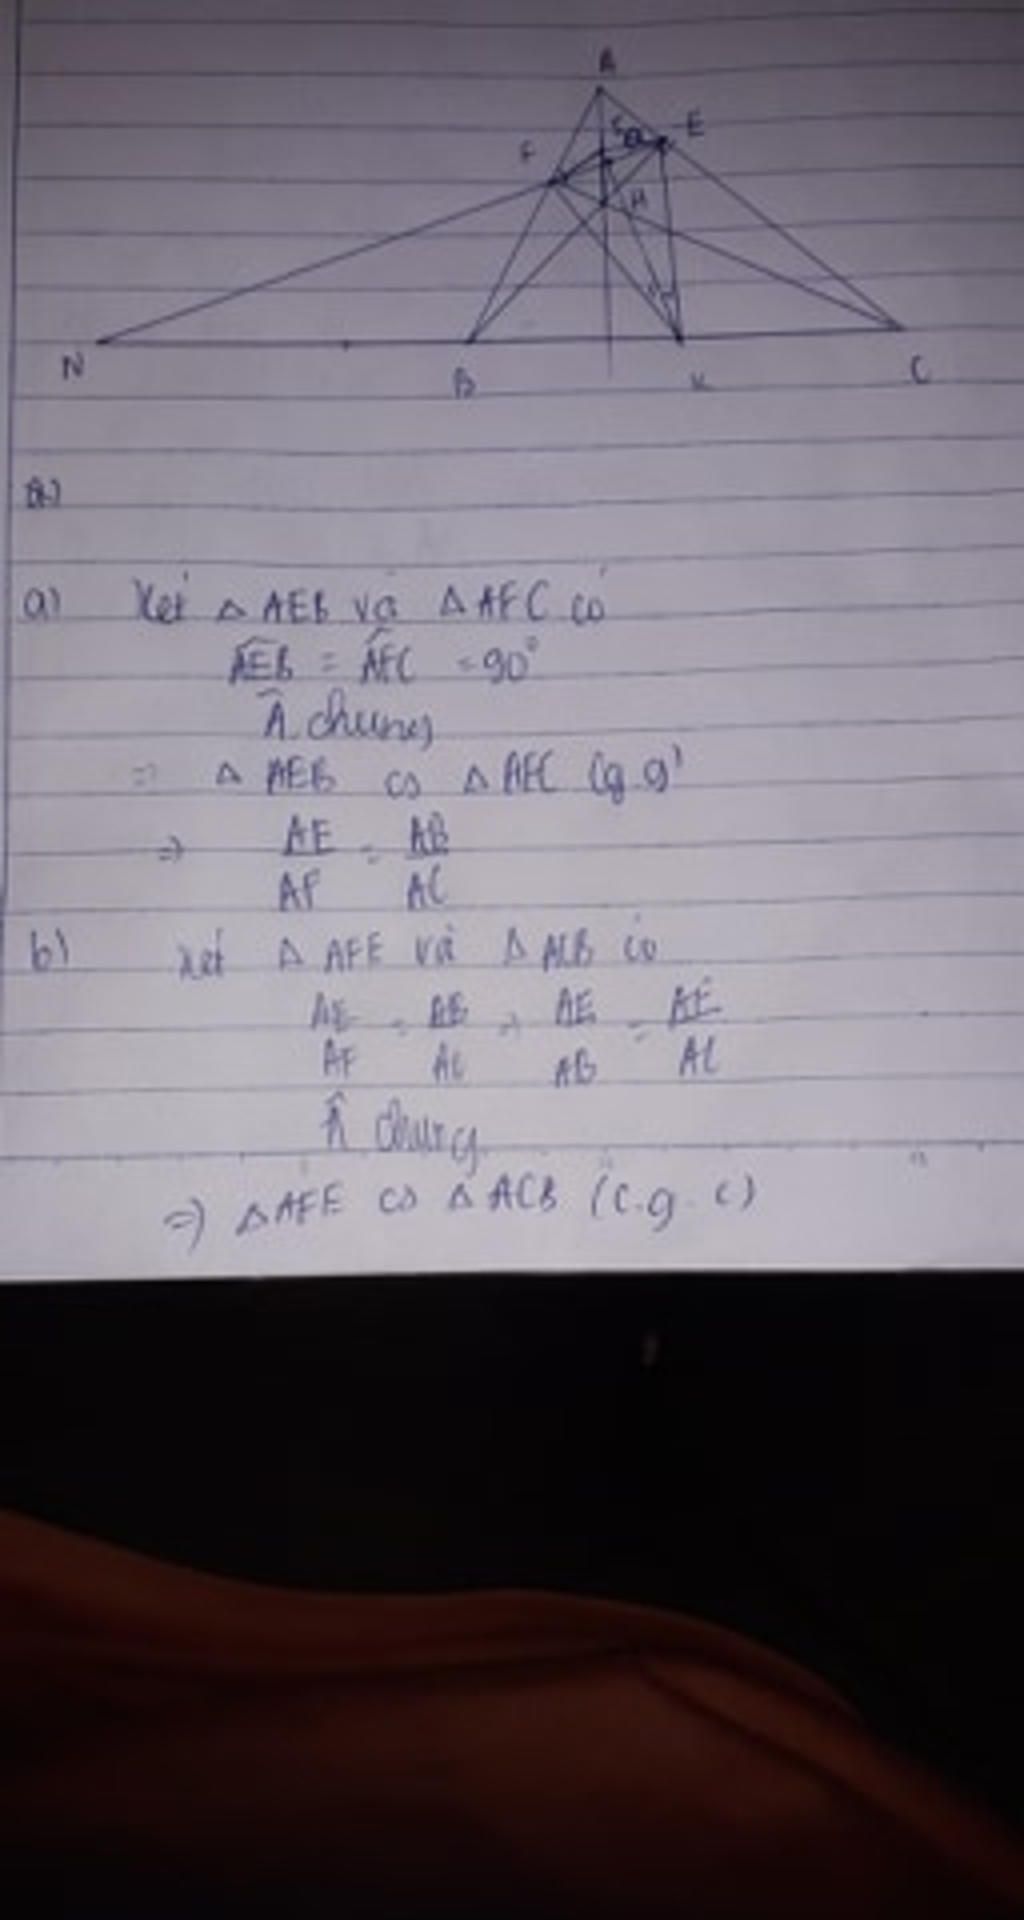 A
F
E
H
N
B
K
C
a)
a) Xét △ AEB và △ AFC có
AEB = AFC = 90°
Â chung
=> △ AEB ∽ △ AFC (g.g)
=> AE/AF = AB/AC
b) Xét △ AFE và △ ACB có
AE/AF = AB/AC => AE/AB = AF/AC
Â chung
=> △AFE ∽ △ACB (c.g.c)